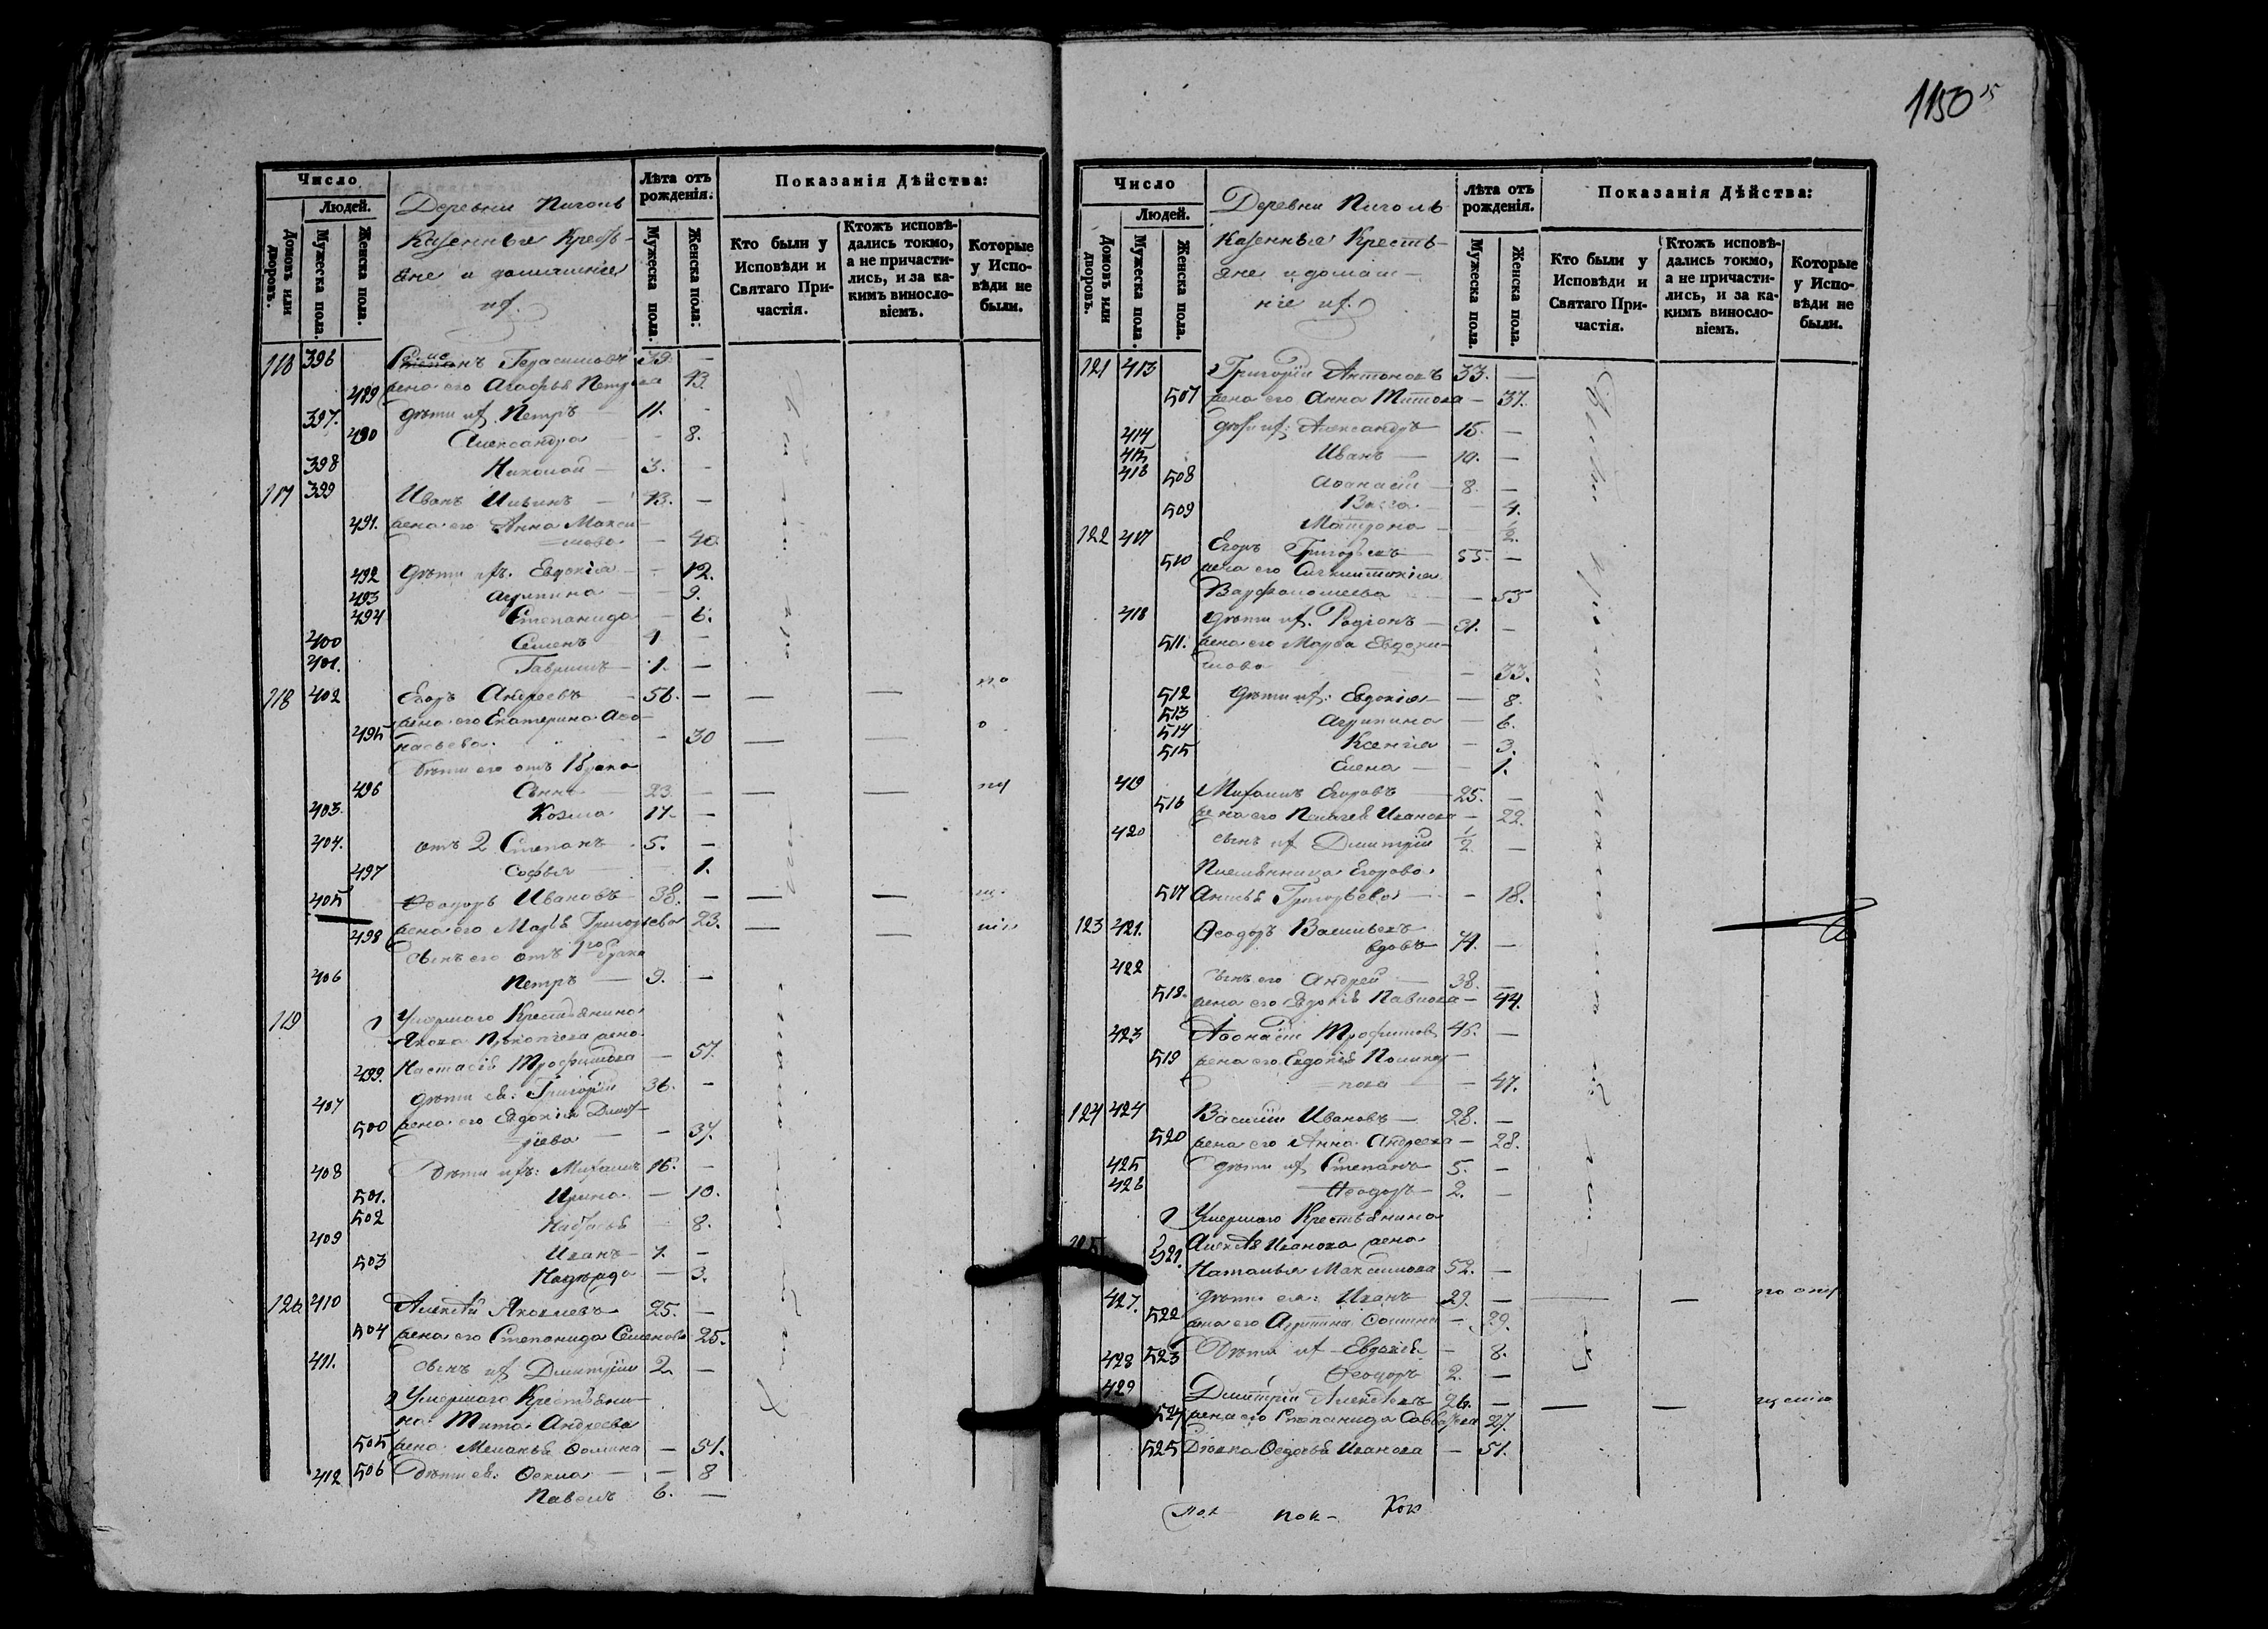 1150 15
Число
Лѣта отъ рожденія.
Показанія Дѣйства:
Людей.
Деревни Пиголь
Казенные Кресть-
яне и домашніе
их
Домовъ или дворовъ.
Мужеска пола.
Женска пола.
Мужеска пола.
Женска пола:
Кто были у Исповѣди и Святаго Причастія.
Ктожъ исповѣдались токмо, а не причастились, и за какимъ винословіемъ.
Которые у Исповѣди не были.
116 396 Герасимовъ 39. —
489 жена его Агафья Петрова 43.
397. дѣти их Петръ — 11. -
490 Александра — - 8.
398 Николай — 3. -
117 399 Иванъ Ильинъ — 43. —
491. жена его Анна Макси-
мова — 40
492 дѣти ихъ. Евдокія — - 12.
493 Агрипина — - 9.
494 Степанида — 6.
400 Семенъ 4. -
401. Гавріилъ — 1. —
118 402 Егоръ Андреевъ - 56. — — —
495 жена его Екатерина Аѳа-
насьева - 30 — —
Дѣти его отъ 1 брака
496 23. — — —
403. Козма 17. —
404. отъ 2 Степанъ 5. —
497 Софья — 1.
405 Ѳеодоръ Ивановъ — 38. — — —
498 жена его Марья Григорьева 23. — —
Сынъ его отъ 1го брака
406 Петръ — 9. —
119 Умершаго Крестьянина
Якова Прокопьева жена
499. Настасія Трофимова — 57.
407 дѣти ея: Григорій 36. -
500 жена его Евдокія Дмит-
ріева — - 37.
408 Дѣти ихъ: Михаилъ 16. —
501. Ирина — 10.
502 Настасья 8.
409 Иванъ — 7. -
503 Надежда — 3.
120 410 Алексѣй Яковлевъ 25. —
504 жена его Степанида Семенова 25.
411. сынъ их Дмитрій 2. —
Умершаго Крестьяни-
на Тита Андреева
505 жена Меланья Ѳомина — 51.
506 Дѣти ея: Ѳекла — — 8
412 Павелъ 6. —
Число
Лѣта отъ рожденія.
Показанія Дѣйства:
Людей.
Деревни Пиголь
Казенные Кресть-
яне и домаш-
ніе их.
Домовъ или дворовъ.
Мужеска пола.
Женска пола.
Мужеска пола.
Женска пола.
Кто были у Исповѣди и Святаго Причастія.
Ктожъ исповѣдались токмо, а не причастились, и за какимъ винословіемъ.
Которые у Исповѣди не были.
121 413 Григорій Антоновъ 33. —
507 жена его Анна Титова — 37.
414 дѣти их: Александръ 15. —
415 Иванъ — 10. —
416 508 Аѳанасій — 8. —
509 Васса — 4.
Матрона — 1/2.
122 417 Егоръ Григорьевъ — 55. —
510 жена его Синклитикія
Варфоломеева — 55
418 Дѣти их. Родіонъ — 31. —
511. жена его Марѳа Евдоки-
мова — 33.
512 Дѣти их: Евдокія — 8.
513 Агрипина — 6.
514 Ксенія — 3.
515 Елена — - 1.
419 Михаилъ Егоровъ 25. —
516 жена его Пелагея Иванова — 22.
420 сынъ их Дмитрій 1/2 —
Племянница Егорова
517 Анисья Григорьева — - 18.
123 421. Ѳеодоръ Васильевъ
вдовъ 74. —
422 сынъ его Андрей 38. —
518. жена его Евдокія Павлова — 44.
423 Аѳанасій Трофимовъ 46. —
519 жена его Евдокія Поликар-
пова — 47.
124 424 Василій Ивановъ — 28. —
520 жена его Анна Андреева — 28.
425 дѣти их Степанъ 5. —
426 Ѳеодоръ — 2. —
Умершаго Крестьянина
125 521. Алексѣя Иванова жена
Наталья Максимова 52. —
427. дѣти ея: Иванъ 29. — — —
522 жена его Агрипина Ѳомина — 29.
428 523 Дѣти их Евдокія — 8.
Ѳеодоръ 2. —
429 Дмитрій Алексѣевъ 26. — — —
524 жена его Степанида 27.
525 Дѣвка Ѳедосья Иванова — 51.